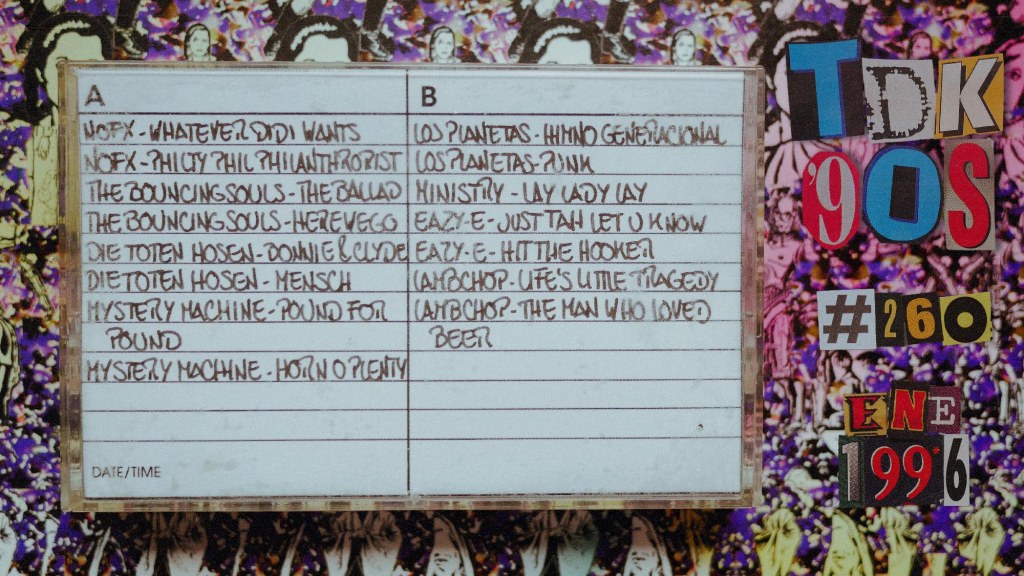 A
NOFX - WHATEVER DIDI WANTS
NOFX - PHILTY PHIL PHILANTHROPIST
THE BOUNCING SOULS - THE BALLAD
THE BOUNCING SOULS - HERE WE GO
DIE TOTEN HOSEN - BONNIE & CLYDE
DIE TOTEN HOSEN - MENSCH
MYSTERY MACHINE - POUND FOR
POUND
MYSTERY MACHINE - HORN O PLENTY
DATE/TIME
B
LOS PLANETAS - HIMNO GENERACIONAL
LOS PLANETAS - PUNK
MINISTRY - LAY LADY LAY
EAZY-E - JUST TAH LET U KNOW
EAZY-E - HIT THE HOOKER
LAMBCHOP - LIFE'S LITTLE TRAGEDY
LAMBCHOP - THE MAN WHO LOVED
BEER
TDK
'90S
#260
ENE
1996